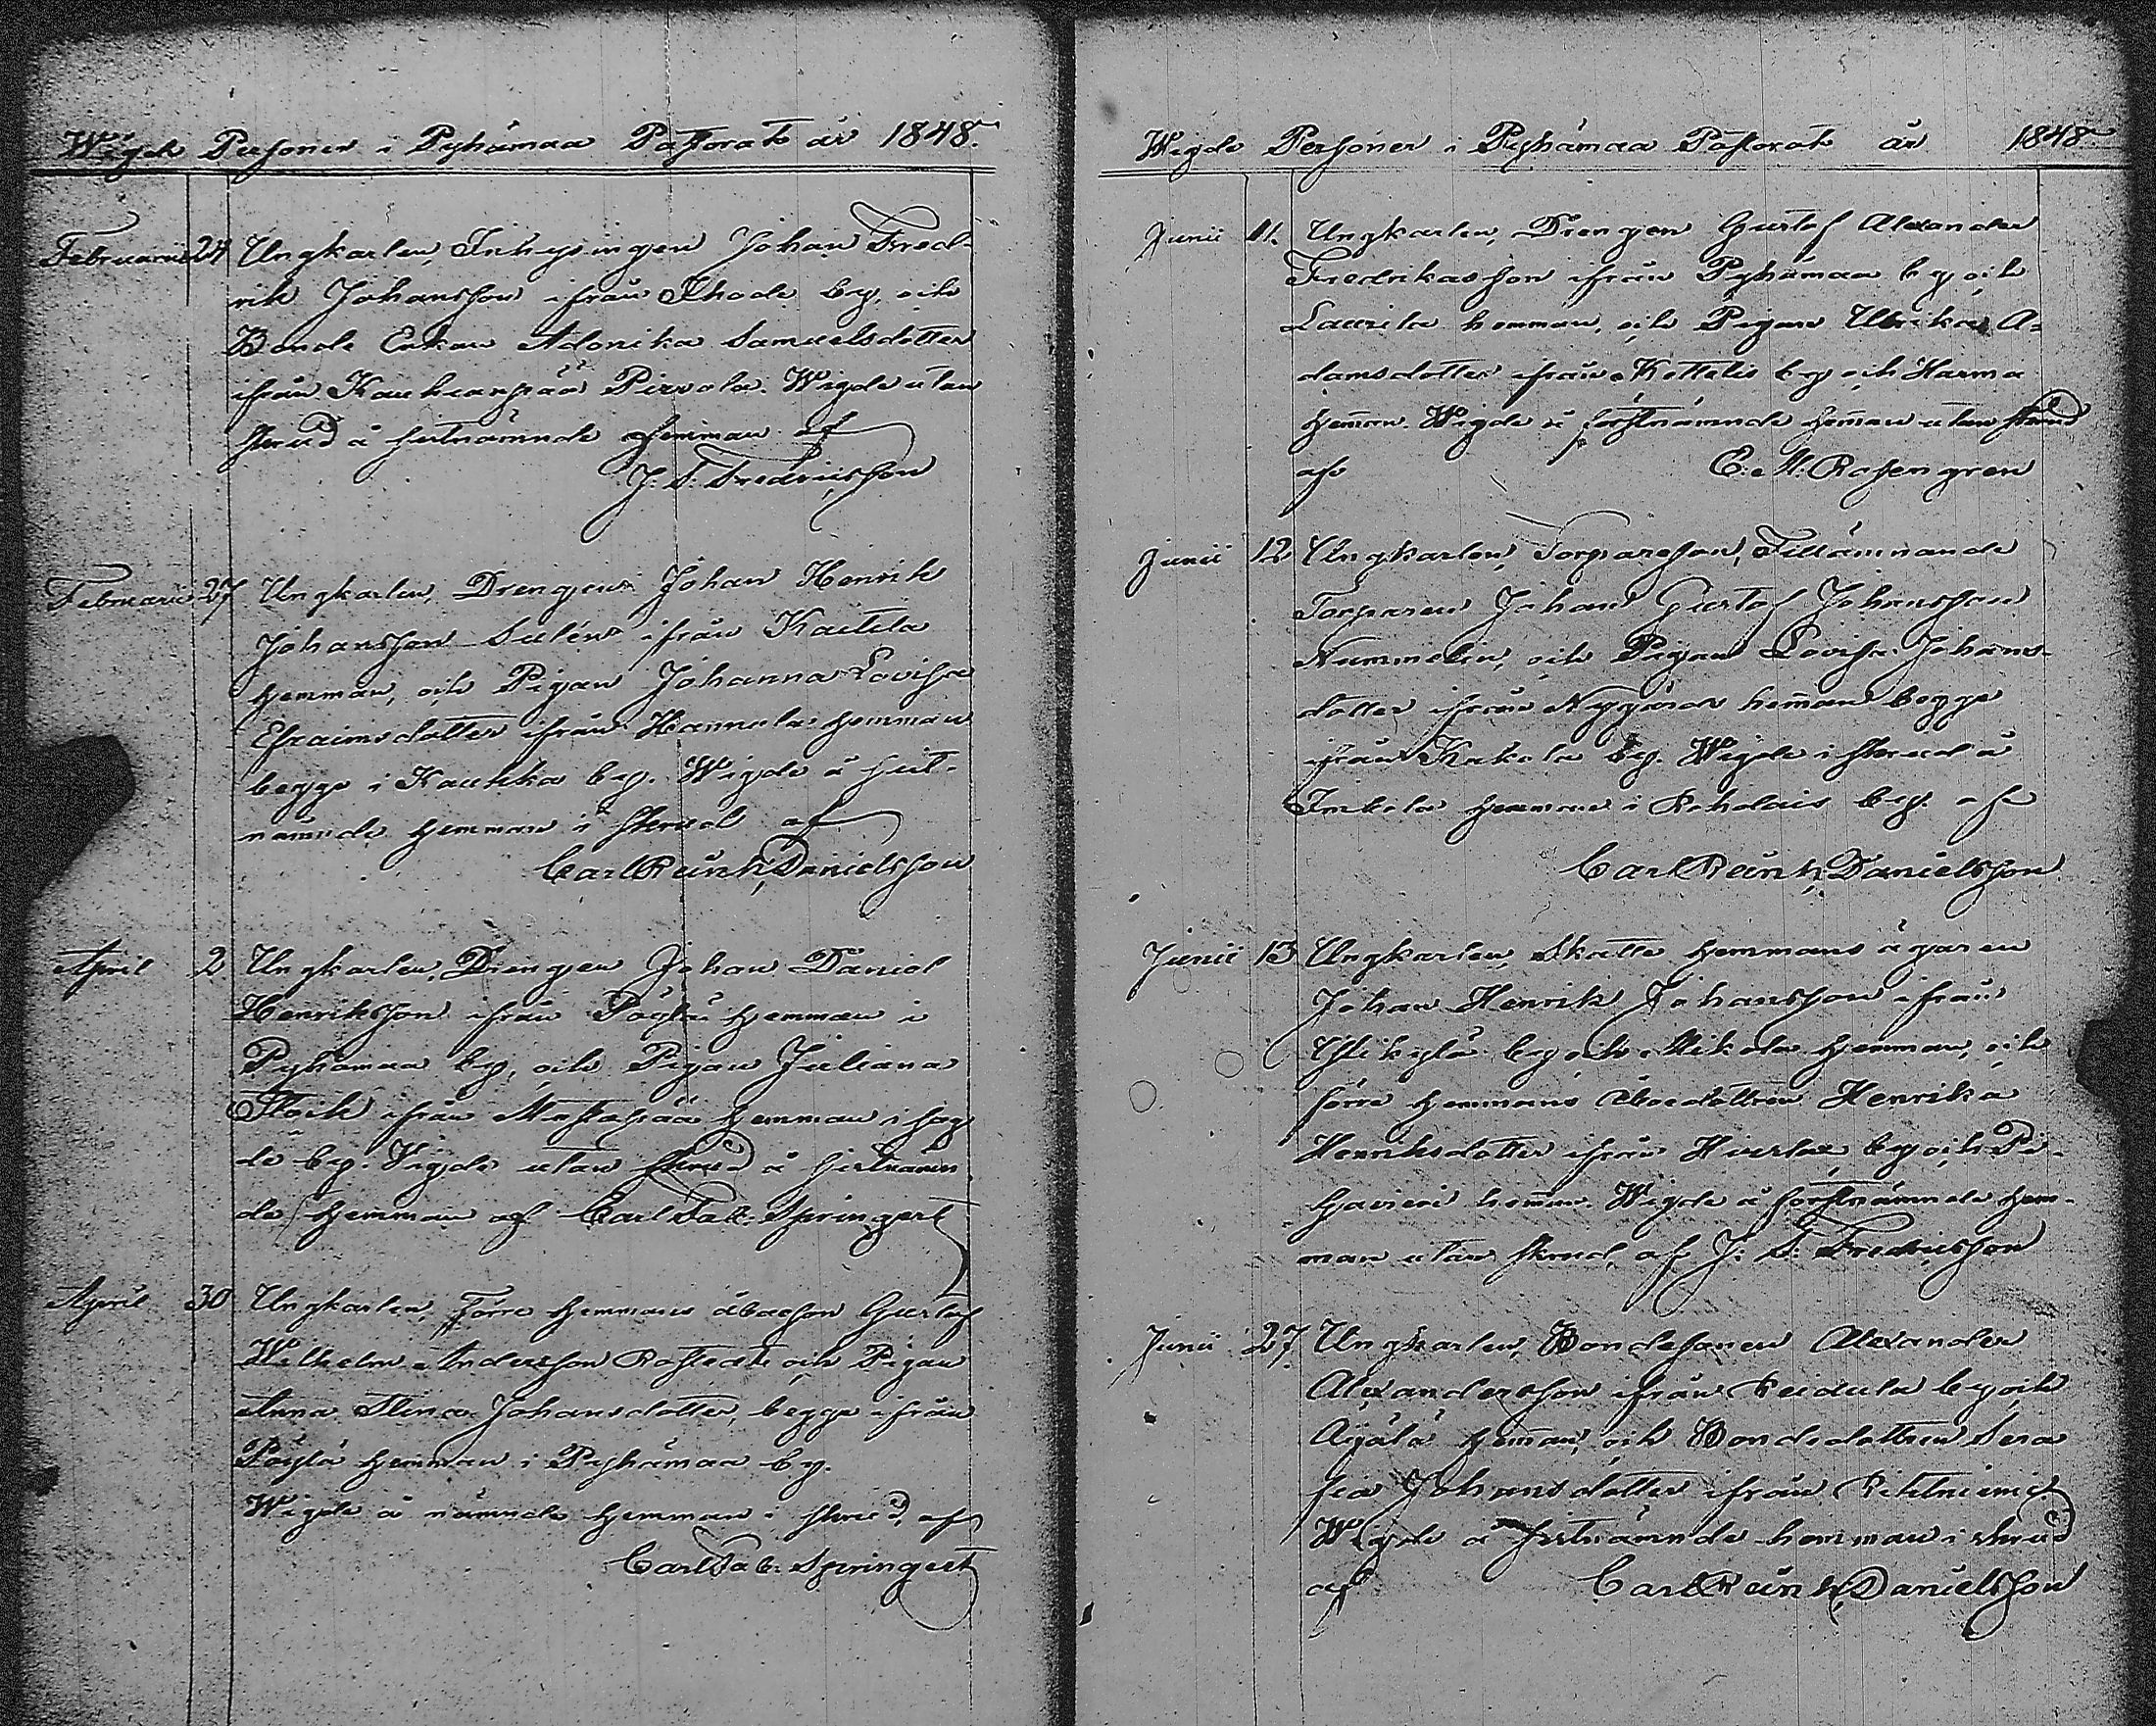 Wigde Personer i Pyhämaa Pastorat år 1848.
Februarii 24 Ungkarlen, Inhysingen Johan Fred-
rik Johansson ifrån Rhode by, och
Bonde Enkan Adonika Samuelsdotter
ifrån Kaukanpää Pirrola. Wigde utan
skrud å sistnämnde Hemman af
J. S. Fredricsson
Februarii 27 Ungkarlen, Drengen Johan Henrik
Johansson Sulén ifrån Kaitila
Hemman, och Pigan Johanna Lovisa
Efraimsdotter ifrån Hannula Hemman
begge i Kaukka by. Wigde å sist-
nämnde Hemman i skrud af
Carl Danielsson
April 2 Ungkarlen, Drengen Johan Daniel
Henriksson ifrån Päylä Hemman i
Pyhämaa by, och Pigan Juliana
ifrån Hemman i sag
de by. Vigde utan skrud å sistnämn
de Hemman af Carl Springert
April 30 Ungkarlen, Förre Hemmans åboeson Gustaf
Wilhelm Andersson Rostedt och Pigan
Anna Stina Johansdotter, begge ifrån
Päylä Hemman i Pyhämaa by.
Wigde å nämnde Hemman i skrud, af
Carl Springert
Wigde Personer i Pyhämaa Pastorat år 1848
Junii 11. Ungkarlen, Drengen Gustaf Alexander
Fredriksson ifrån Pyhämaa by och
Laurila hemman, och Pigan Ulrika A-
damsdotter ifrån Kettelis by och Harma
Hem̄an. Wigde å förstnämnde Hem̄an utan skrud
af E. M. Rosengren
Junii 12 Ungkarlen, Torparesson, Tillämnande
Torparen Johan Gustaf Johansson
Nummelin, och Pigan Lovisa Johans-
dotter ifrån Nygårds hem̄an begge
ifrån Kukola by. Wigde i skrud å
Inkila Hemman i Rihdais by. af
Carl Danielsson
Junii 13 Ungkarlen, Skatte Hemmans ägaren
Johan Henrik Johansson ifrån
Ylikylä by och Mikola Hemman, och
förre Hemmans Åboedottren Henrika
Henriksdotter ifrån by och Pi-
hem̄an. Wigde å förstnämnde Hem-
man utan skrud, af J. S. Fredricsson
Junii 27 Ungkarlen, Bondesonen Alexander
Alexandersson ifrån Reidula by och
Äyälä Hem̄an, och Bondedottren Sera
fia Johansdotter ifrån Rihtniemi
Wigde å sistnämnde hemman i skrud
af Carl Danielsson